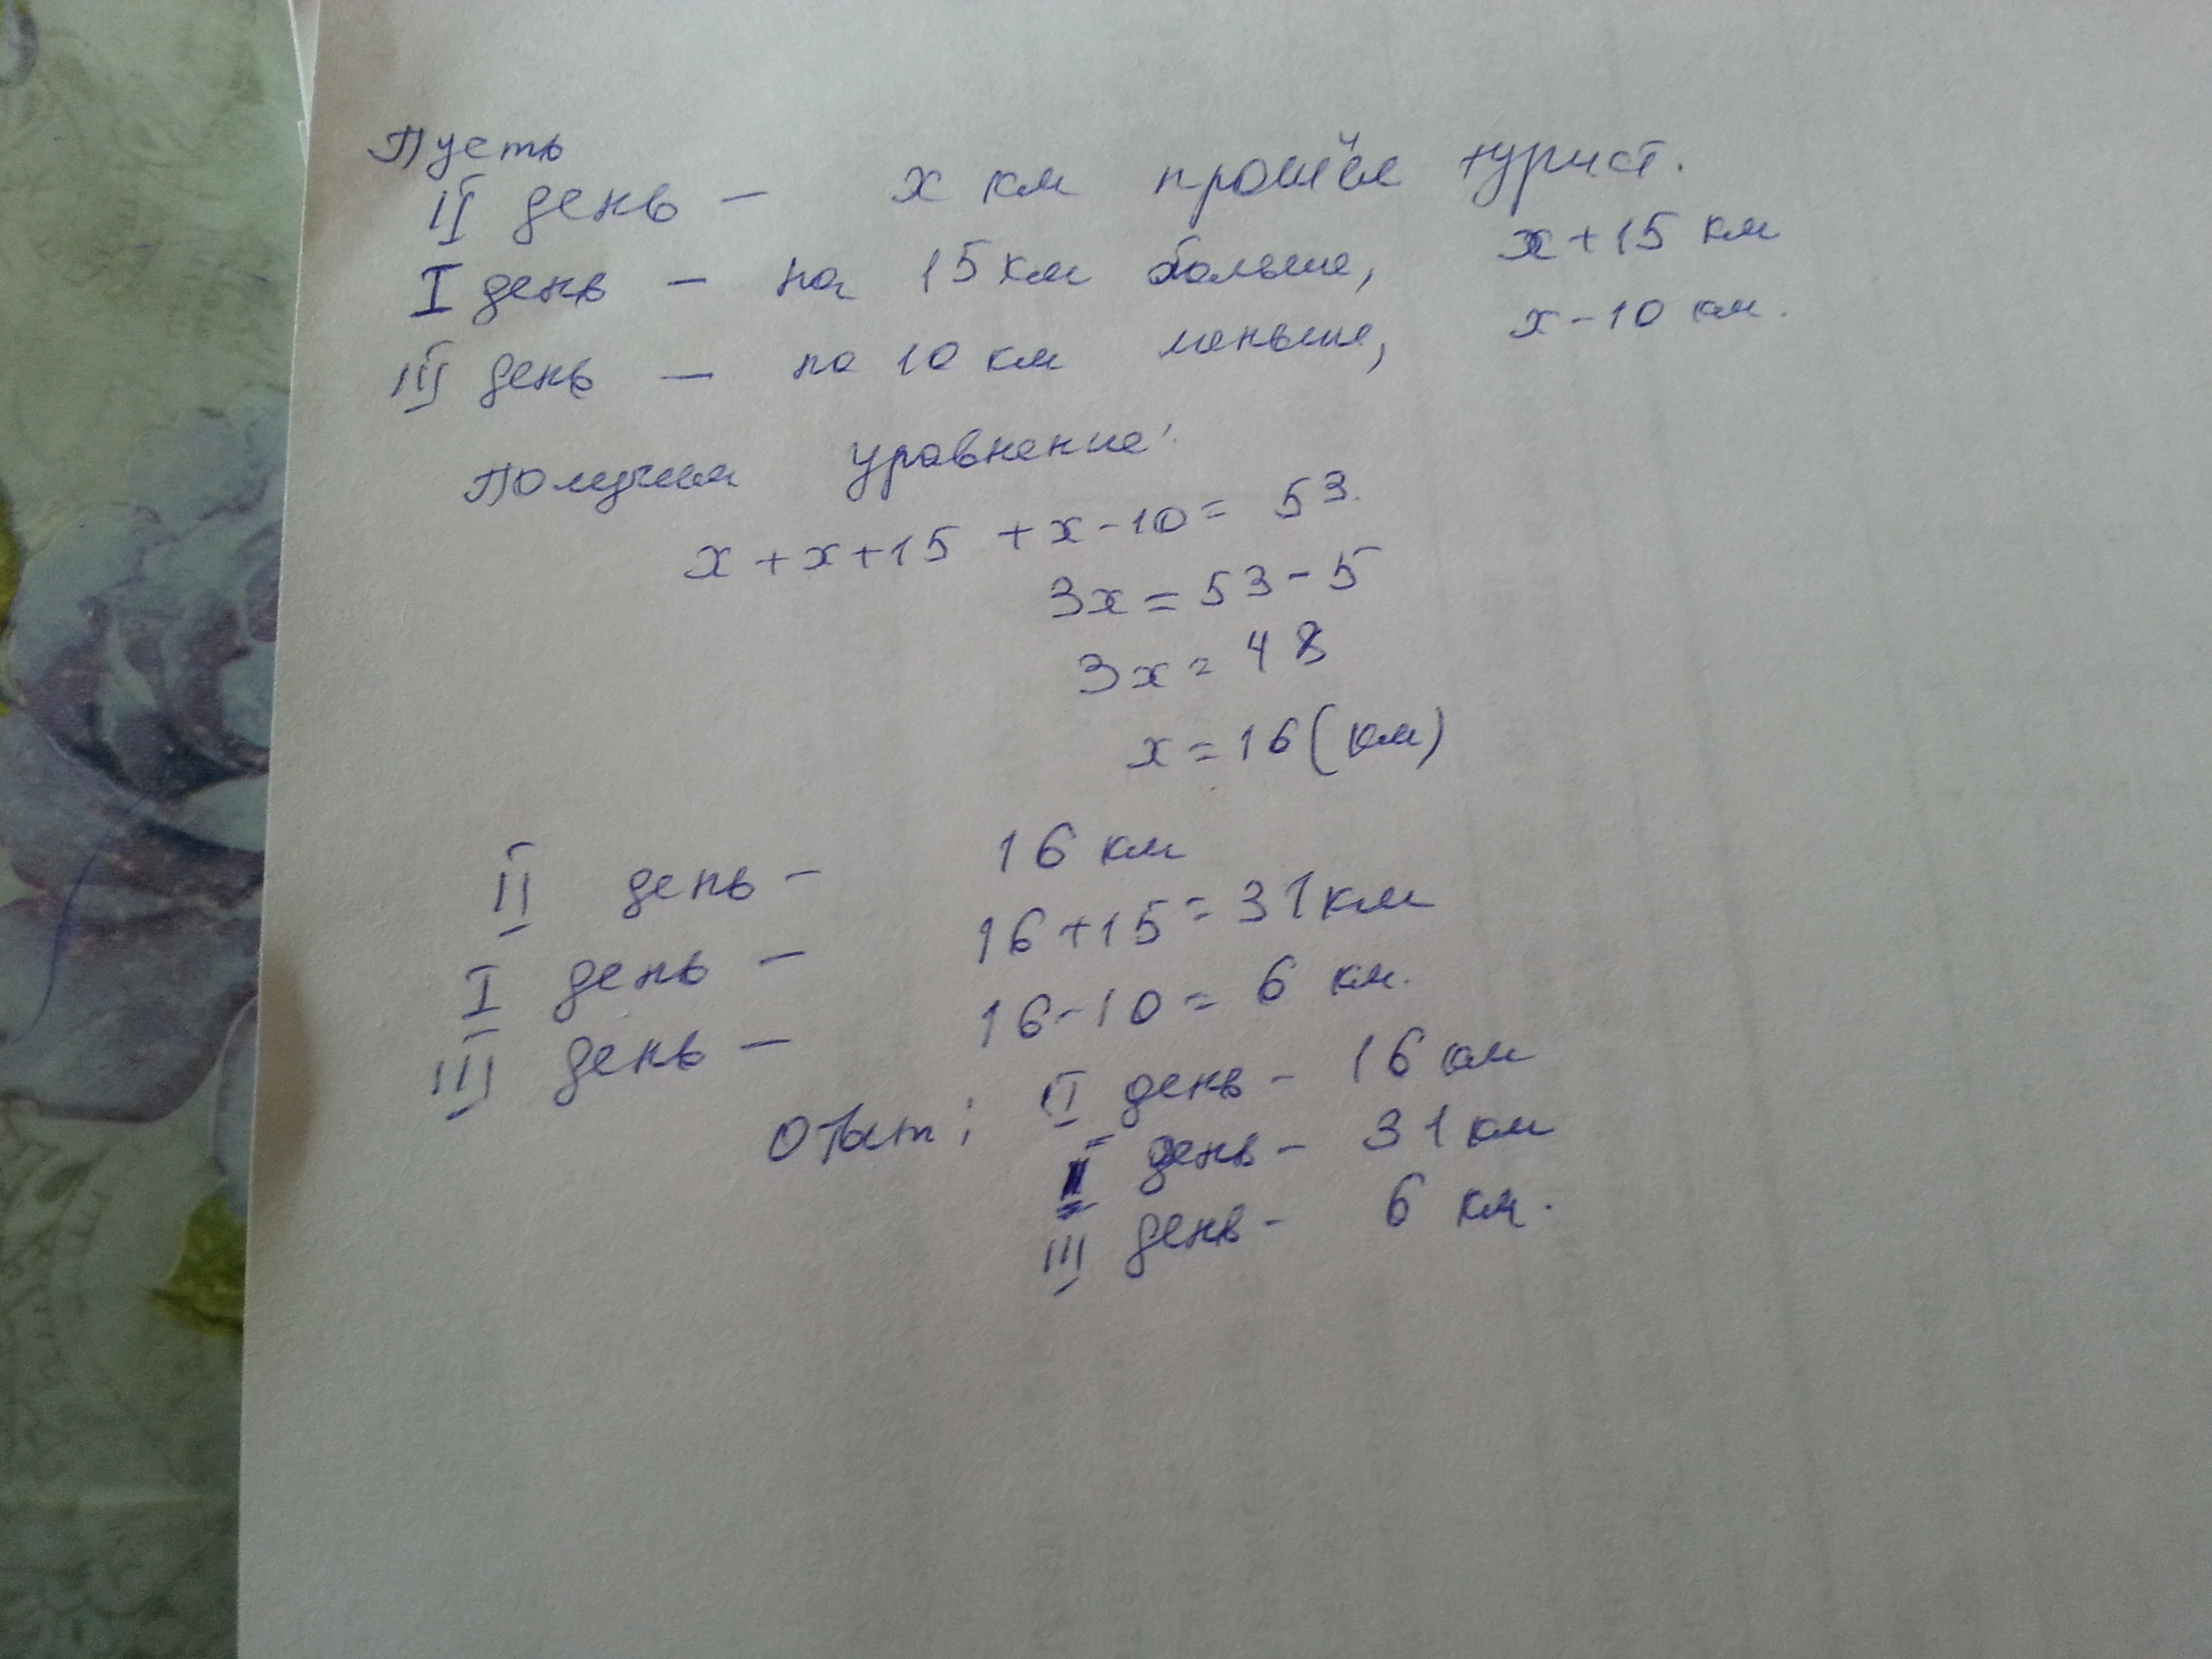 Пусть
II день — x км прошёл турист.
I день — на 15 км больше, x+15 км
III день — на 10 км меньше, x-10 км.
Получим уравнение:
x+x+15+x-10= 53.
3x=53-5
3x=48
x=16(км)
II день — 16 км
I день — 16+15=31км
III день — 16-10= 6 км.
Ответ: II день - 16 км
I день - 31 км
III день - 6 км.